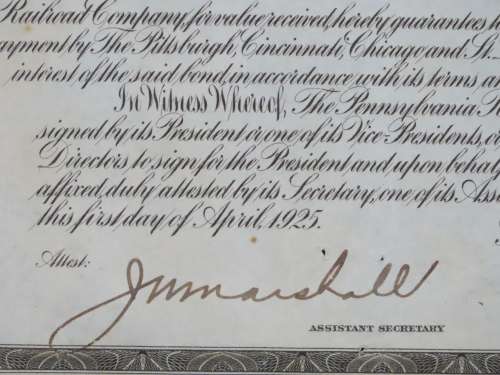 Railroad Company, for value received, hereby guarantees
ayment by The Pittsburgh, Cincinnati, Chicago and St.
interest of the said bond, in accordance with its terms a
In Witness Whereof, The Pennsylvania
signed by its President or one of its Vice-Presidents, o
Directors to sign for the President and upon behalf
affixed, duly attested by its Secretary, one of its Ass
this first day of April, 1925.
Attest:
J W Marshall
ASSISTANT SECRETARY